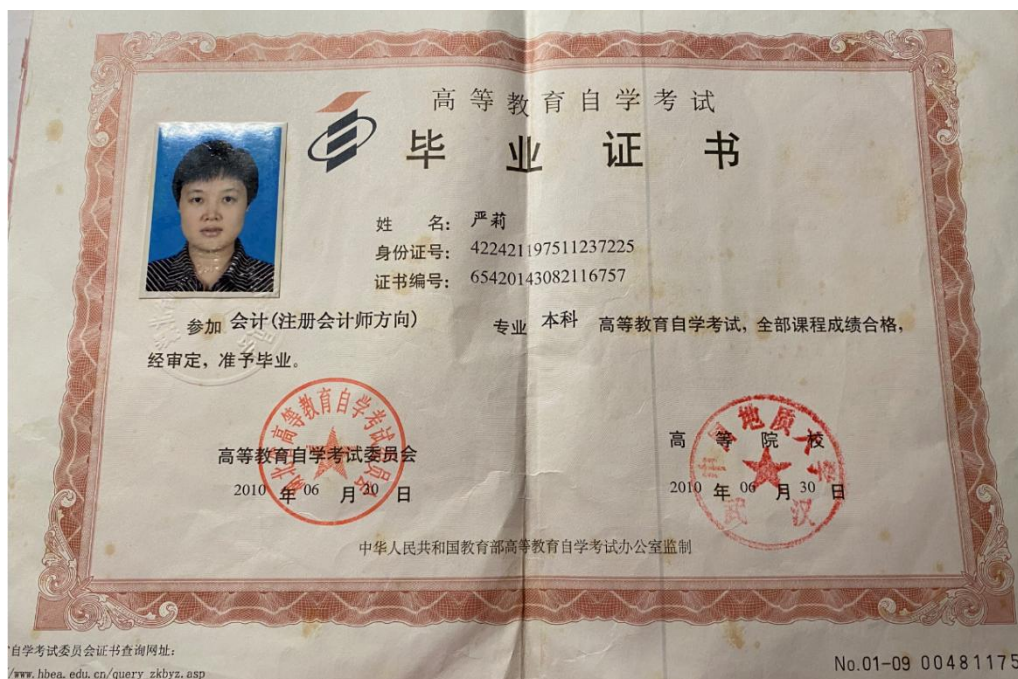 高等教育自学考试
毕业证书
姓 名: 严莉
身份证号: 422421197511237225
证书编号: 65420143082116757
参加 会计(注册会计师方向) 专业 本科 高等教育自学考试, 全部课程成绩合格,
经审定, 准予毕业。
高等教育自学考试委员会
2010 年 06 月 30 日
湖北省高等教育自学考试委员会
高 等 院 校
2010 年 06 月 30 日
中国地质大学
武汉
中华人民共和国教育部高等教育自学考试办公室监制
自学考试委员会证书查询网址:
/www.hbea.edu.cn/query_zkbyz.asp
No.01-09 00481175